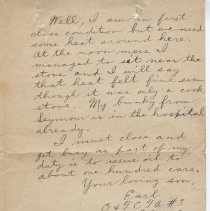 Well, I am in first
class condition but we need
some heat around here.
At the noon mess I
managed to sit near the
stove and I will say
that heat felt fine even
though it was only a cook
stove. My bunky from
Seymour is in the hospital
already.
I must close and
get busy as part of my
duty is to issue oil to
about one hundred cars.
Your loving son,
Earl
O & T C Td #3